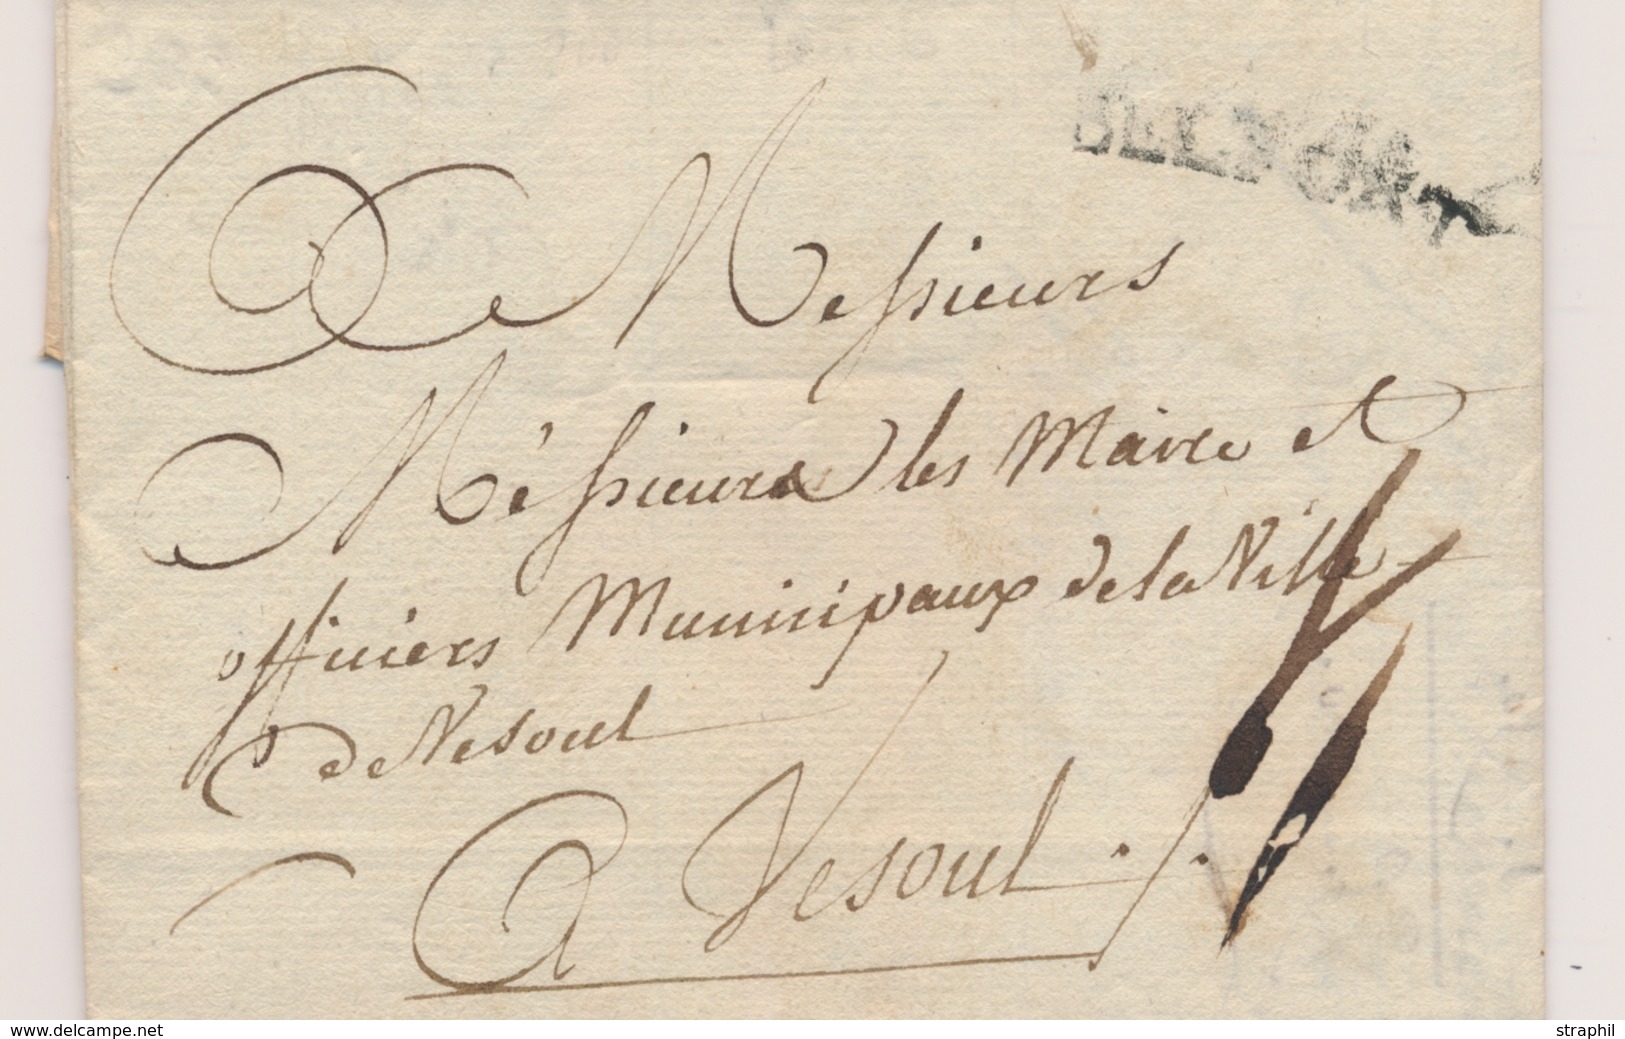 BELFORT
Messieurs
Méssieurs les Maire et
officiers Municipaux de la Ville
de Vesoul
A Vesoul
www.delcampe.net
straphil